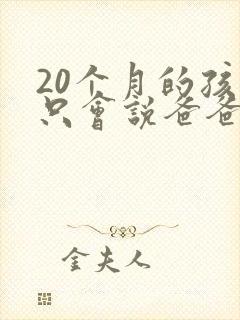 20个月的孩
只會説爸爸
金夫人